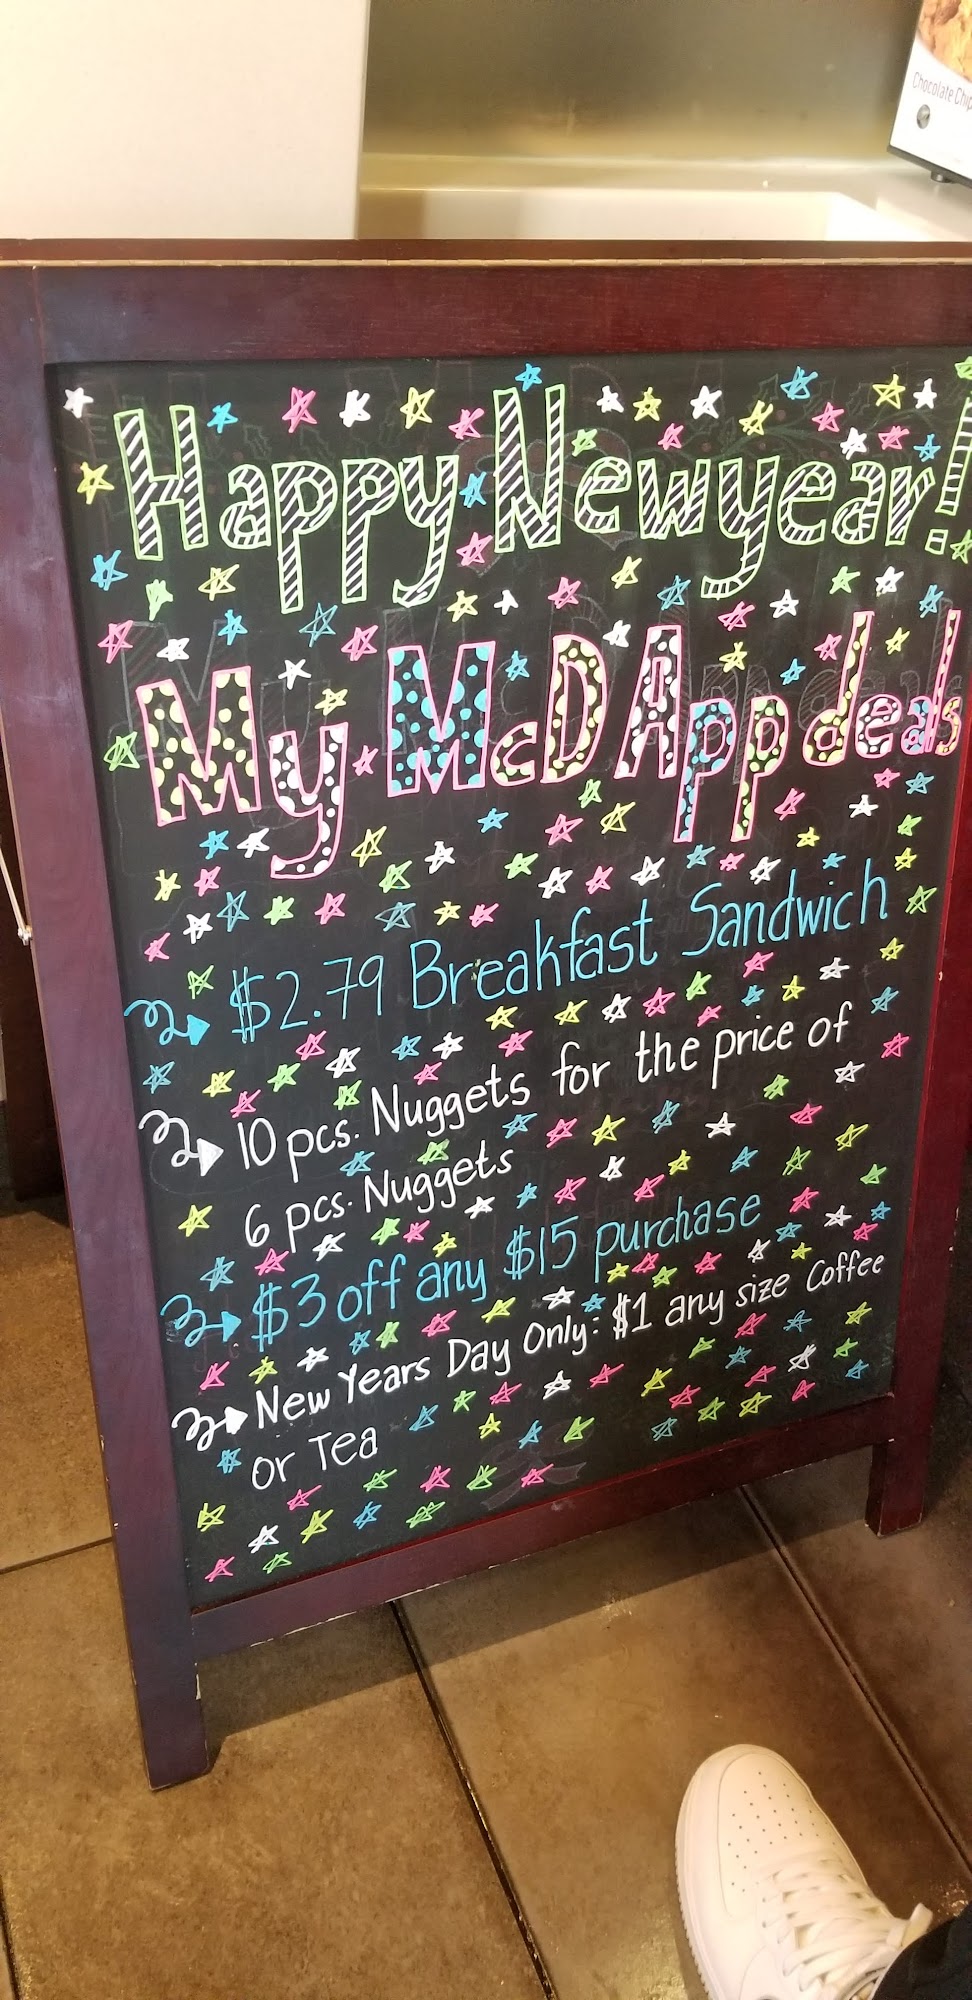 Chocolate Chip
Happy Newyear!
My McDApp deals
$2.79 Breakfast Sandwich
10 pcs. Nuggets for the price of
6 pcs. Nuggets
$3 off any $15 purchase
New Years Day Only: $1 any size Coffee
or Tea